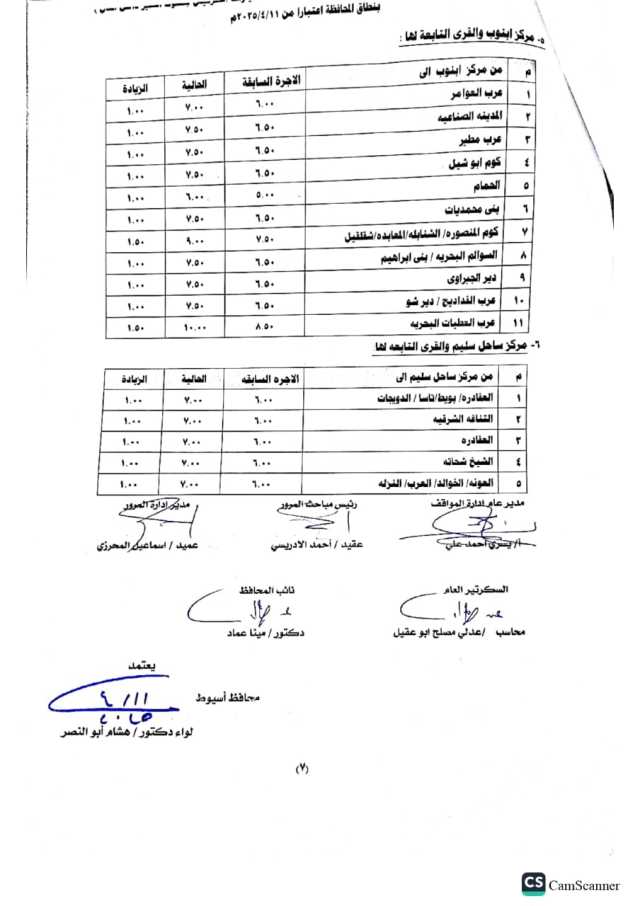 بنطاق المحافظة اعتبارا من ٢٠٢٥/٤/١١م
٥- مركز ابنوب والقرى التابعة لها :
م | من مركز ابنوب الى | الاجرة السابقة | الحالية | الزيادة
١ | عرب العوامر | ٦.٠٠ | ٧.٠٠ | ١.٠٠
٢ | المدينه الصناعيه | ٦.٥٠ | ٧.٥٠ | ١.٠٠
٣ | عرب مطير | ٦.٥٠ | ٧.٥٠ | ١.٠٠
٤ | كوم ابو شيل | ٦.٥٠ | ٧.٥٠ | ١.٠٠
٥ | الحمام | ٥.٠٠ | ٦.٠٠ | ١.٠٠
٦ | بنى محمديات | ٦.٥٠ | ٧.٥٠ | ١.٠٠
٧ | كوم المنصوره/ الشنابله/المعابده/شقلقيل | ٧.٥٠ | ٩.٠٠ | ١.٥٠
٨ | السوالم البحريه / بنى ابراهيم | ٦.٥٠ | ٧.٥٠ | ١.٠٠
٩ | دير الجبراوى | ٦.٥٠ | ٧.٥٠ | ١.٠٠
١٠ | عرب القداديح / دير شو | ٦.٥٠ | ٧.٥٠ | ١.٠٠
١١ | عرب العطيات البحريه | ٨.٥٠ | ١٠.٠٠ | ١.٥٠
٦- مركز ساحل سليم والقرى التابعه لها
م | من مركز ساحل سليم الى | الاجره السابقه | الحالية | الزيادة
١ | العقادره/ بويط/تاسا / الدويجات | ٦.٠٠ | ٧.٠٠ | ١.٠٠
٢ | التناغه الشرقيه | ٦.٠٠ | ٧.٠٠ | ١.٠٠
٣ | العقادره | ٦.٠٠ | ٧.٠٠ | ١.٠٠
٤ | الشيخ شحاته | ٦.٠٠ | ٧.٠٠ | ١.٠٠
٥ | العونه/ الخوالد/ العرب/ النزله | ٦.٠٠ | ٧.٠٠ | ١.٠٠
مدير عام إدارة المواقف
رئيس مباحث المرور
مدير إدارة المرور
أ/ يسري أحمد علي
عقيد / أحمد الادريسي
عميد / اسماعيل المحرزي
السكرتير العام
نائب المحافظ
محاسب /عدلي مصلح ابو عقيل
دكتور/ مينا عماد
يعتمد
محافظ أسيوط
٤/١١
٢٠٢٥
لواء دكتور / هشام أبو النصر
(٧)
CS CamScanner